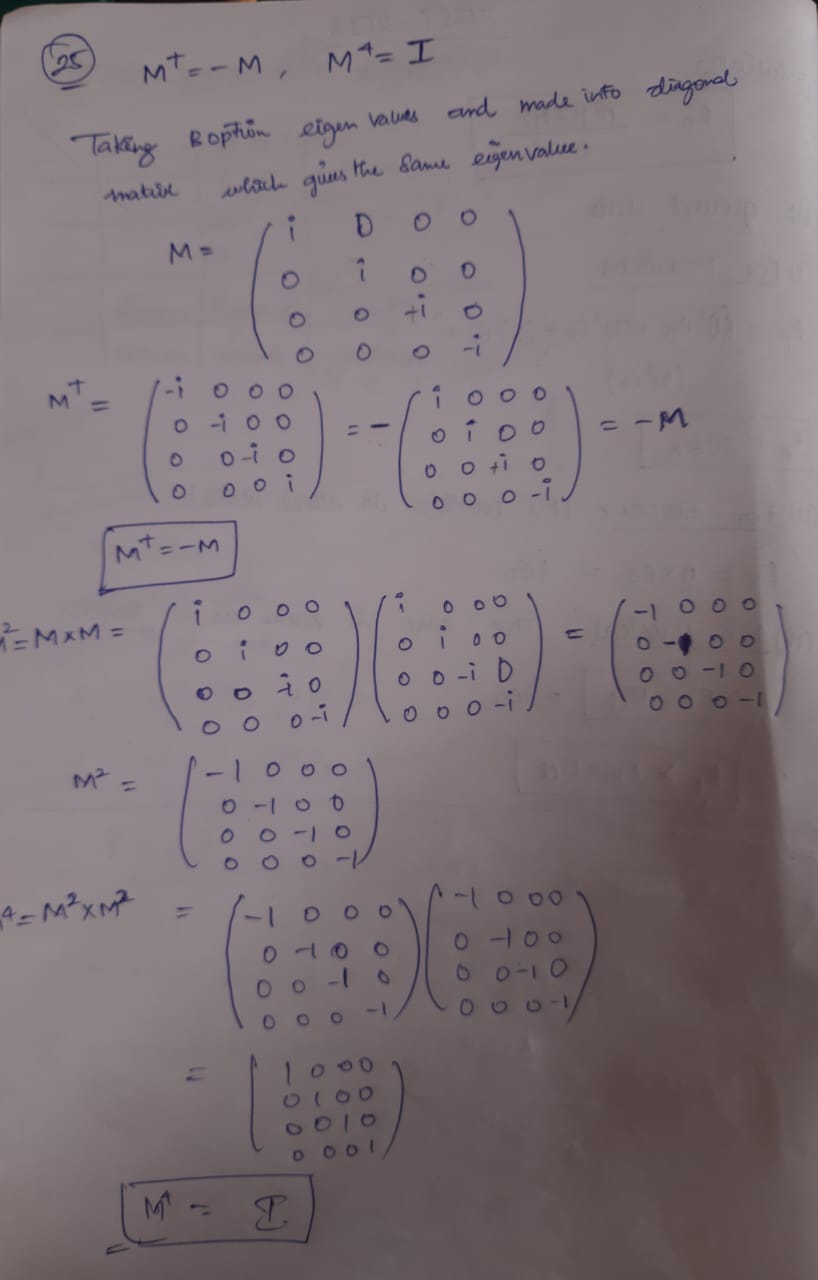 25
M† = -M, M⁴ = I
Taking B option eigen values and made into diagonal
matrix which gives the same eigen value.
M = ( i 0 0 0
0 i 0 0
0 0 +i 0
0 0 0 -i )
M† = ( -i 0 0 0
0 -i 0 0
0 0 -i 0
0 0 0 i ) = - ( i 0 0 0
0 i 0 0
0 0 +i 0
0 0 0 -i ) = -M
M† = -M
² = M×M = ( i 0 0 0
0 i 0 0
0 0 -i 0
0 0 0 -i ) ( i 0 0 0
0 i 0 0
0 0 -i 0
0 0 0 -i ) = ( -1 0 0 0
0 -1 0 0
0 0 -1 0
0 0 0 -1 )
M² = ( -1 0 0 0
0 -1 0 0
0 0 -1 0
0 0 0 -1 )
⁴ = M² × M² = ( -1 0 0 0
0 -1 0 0
0 0 -1 0
0 0 0 -1 ) ( -1 0 0 0
0 -1 0 0
0 0 -1 0
0 0 0 -1 )
= ( 1 0 0 0
0 1 0 0
0 0 1 0
0 0 0 1 )
M⁴ = I